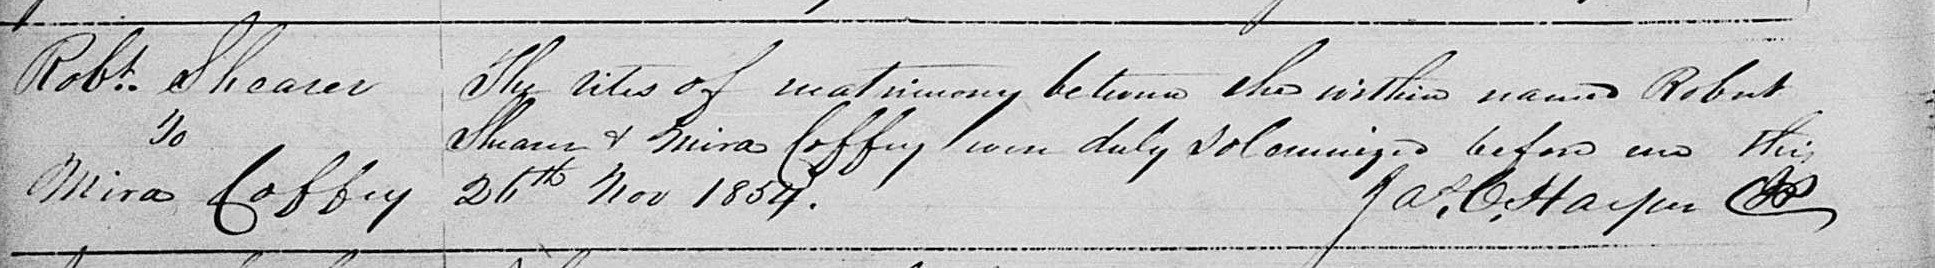 Robt. Shearer
to
Mira Coffey
The rites of matrimony between the within named Robert
Shearer & Mira Coffey were duly solemnized before me this
26th Nov 1854.
Jas. C. Harper